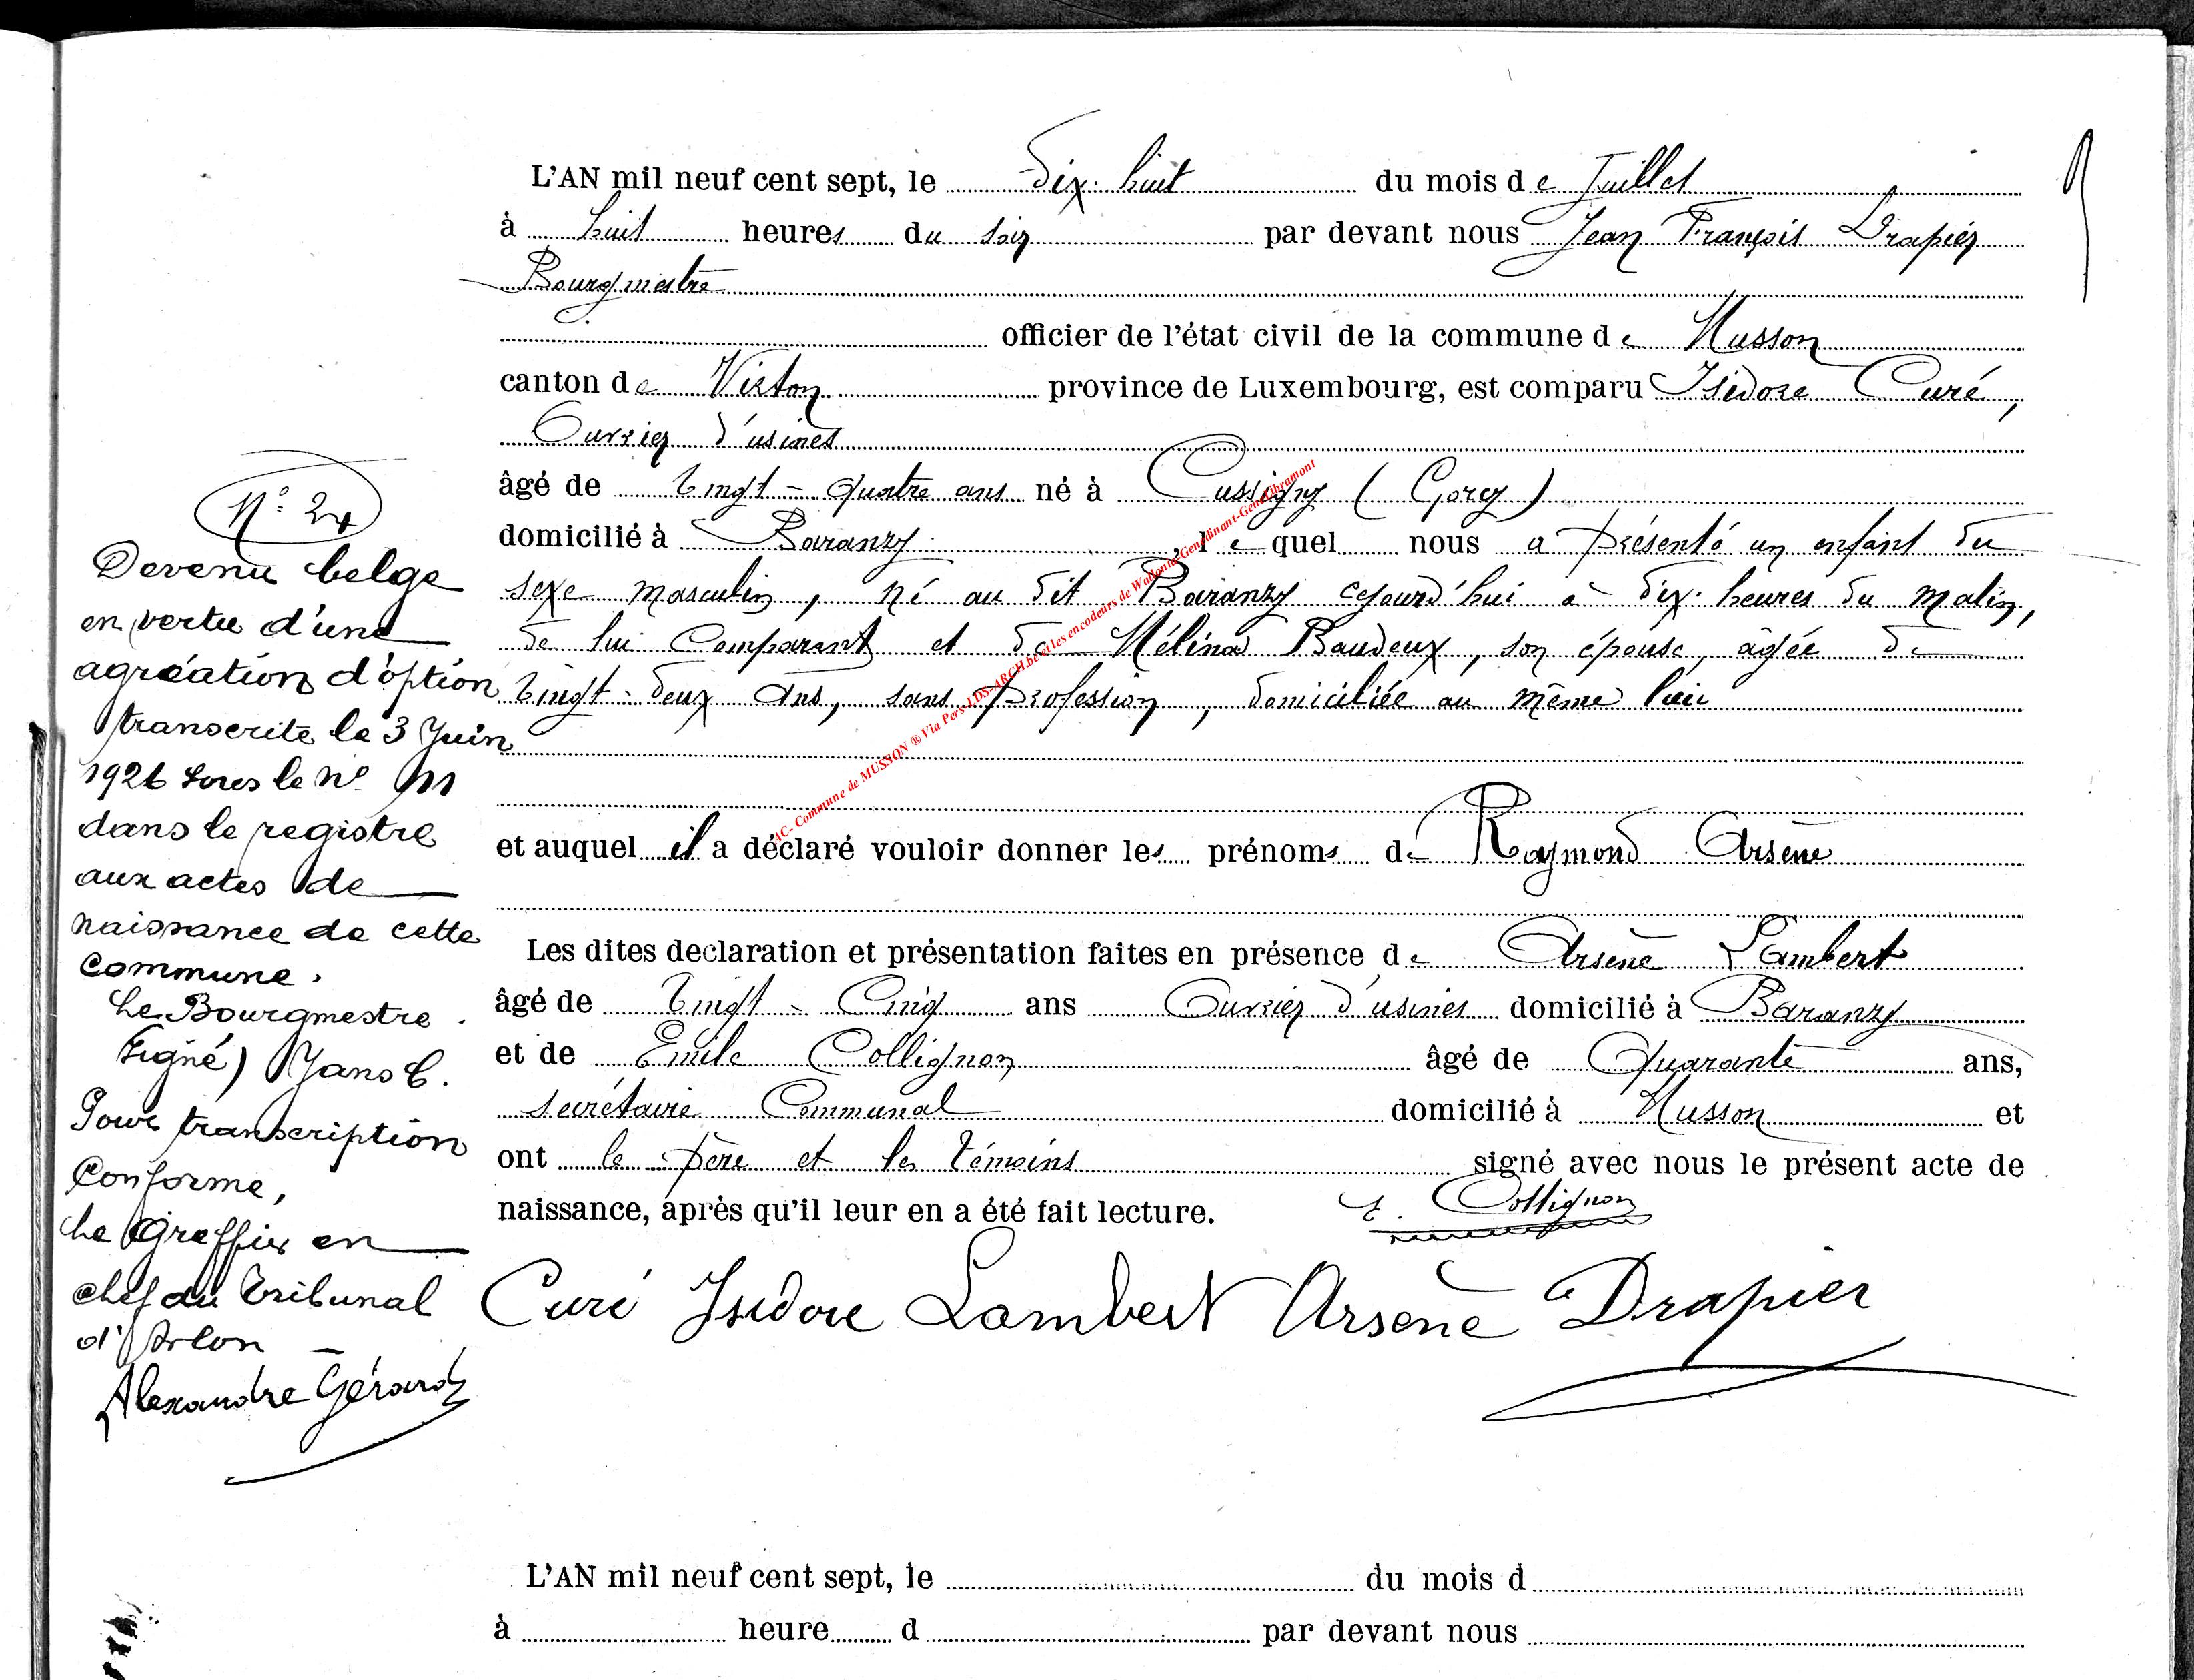 L'AN mil neuf cent sept, le Dix-huit du mois de Juillet
à huit heures du soir par devant nous Jean François Drapier
Bourgmestre
officier de l'état civil de la commune de Musson
canton de Virton province de Luxembourg, est comparu Isidore Curé,
Ouvrier d'usines
âgé de vingt-quatre ans né à Cussigny (Gorcy)
domicilié à Baranzy, lequel nous a présenté un enfant du
sexe masculin, né au dit Baranzy cejourd'hui à dix heures du matin,
de lui Comparant et de Mélina Baudeux, son épouse, âgée de
vingt-deux ans, sans profession, domiciliée au même lieu
et auquel il a déclaré vouloir donner les prénoms de Raymond Arsène
Les dites declaration et présentation faites en présence de Arsène Lambert
âgé de Vingt-Cinq ans Ouvrier d'usines domicilié à Baranzy
et de Emile Collignon âgé de Quarante ans,
secrétaire Communal domicilié à Musson et
ont le père et les témoins signé avec nous le présent acte de
naissance, après qu'il leur en a été fait lecture.
E. Collignon
Curé Isidore Lambert Arsène Drapier
N° 24
Devenu belge
en vertu d'une
agréation d'option
transcrite le 3 Juin
1926 sous le n° 11
dans le registre
aux actes de
naissance de cette
commune.
Le Bourgmestre.
Signé) Jans C.
Pour transcription
Conforme,
Le Greffier en
chef du Tribunal
d'Arlon
Alexandre Gérard
AC- Commune de MUSSON ® Via Pers-LDS-ARCH.be et les encodeurs de Wallonie-Genedinant-GeneLibramont
L'AN mil neuf cent sept, le du mois d
à heure d par devant nous